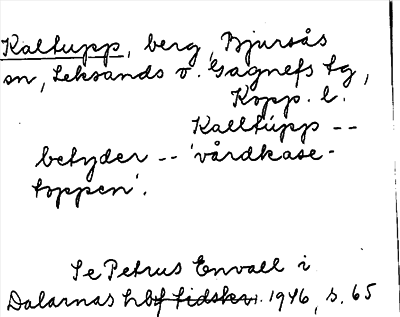 Kaltupp, berg, Bjursås
sn, Leksands o. Gagnefs tg,
Kopp. l.
Kalltùpp --
betyder -- 'vårdkase-
toppen'.
Se Petrus Envall i
Dalarnas hbf tidskr. 1946, s. 65